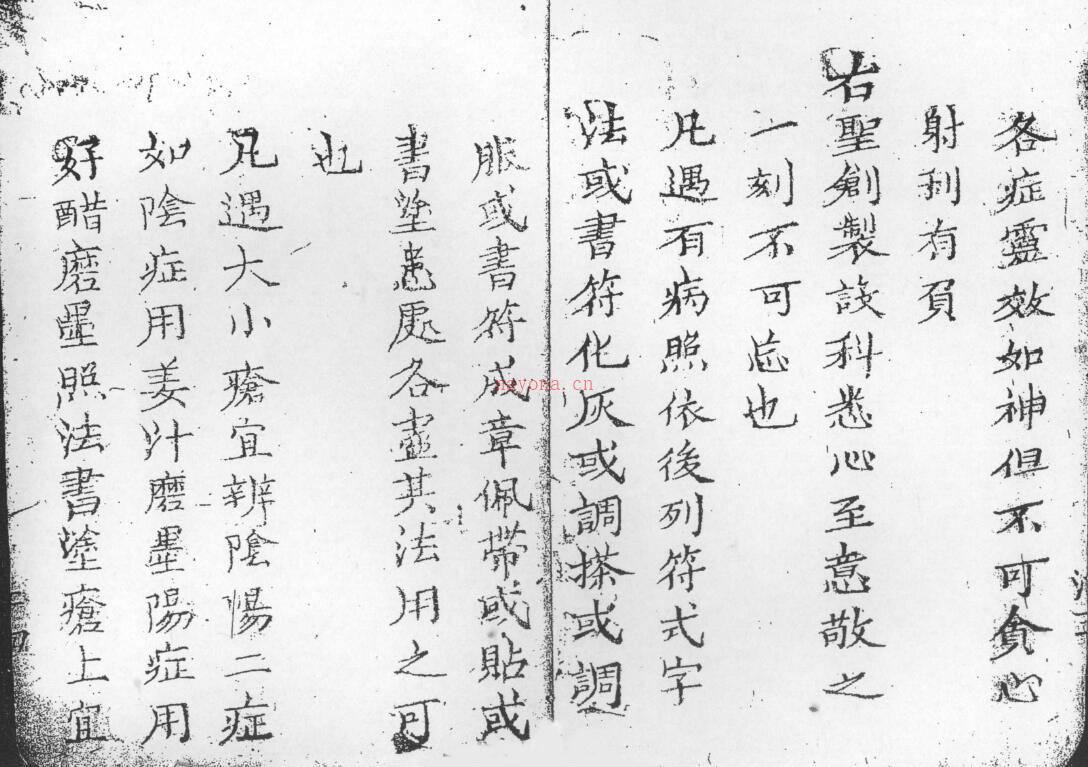 各症靈效如神但不可貪心
射利有負
右聖創製設科悉心至意敬之
一刻不可忘也
凡遇有病照依後列符式字
法或書符化灰或調搽或調
服或書符成章佩帶或貼或
書塗患處各盡其法用之可
也
凡遇大小瘡宜辨陰陽二症
如陰症用姜汁磨墨陽症用
好醋磨墨照法書塗瘡上宜
nayona.cn